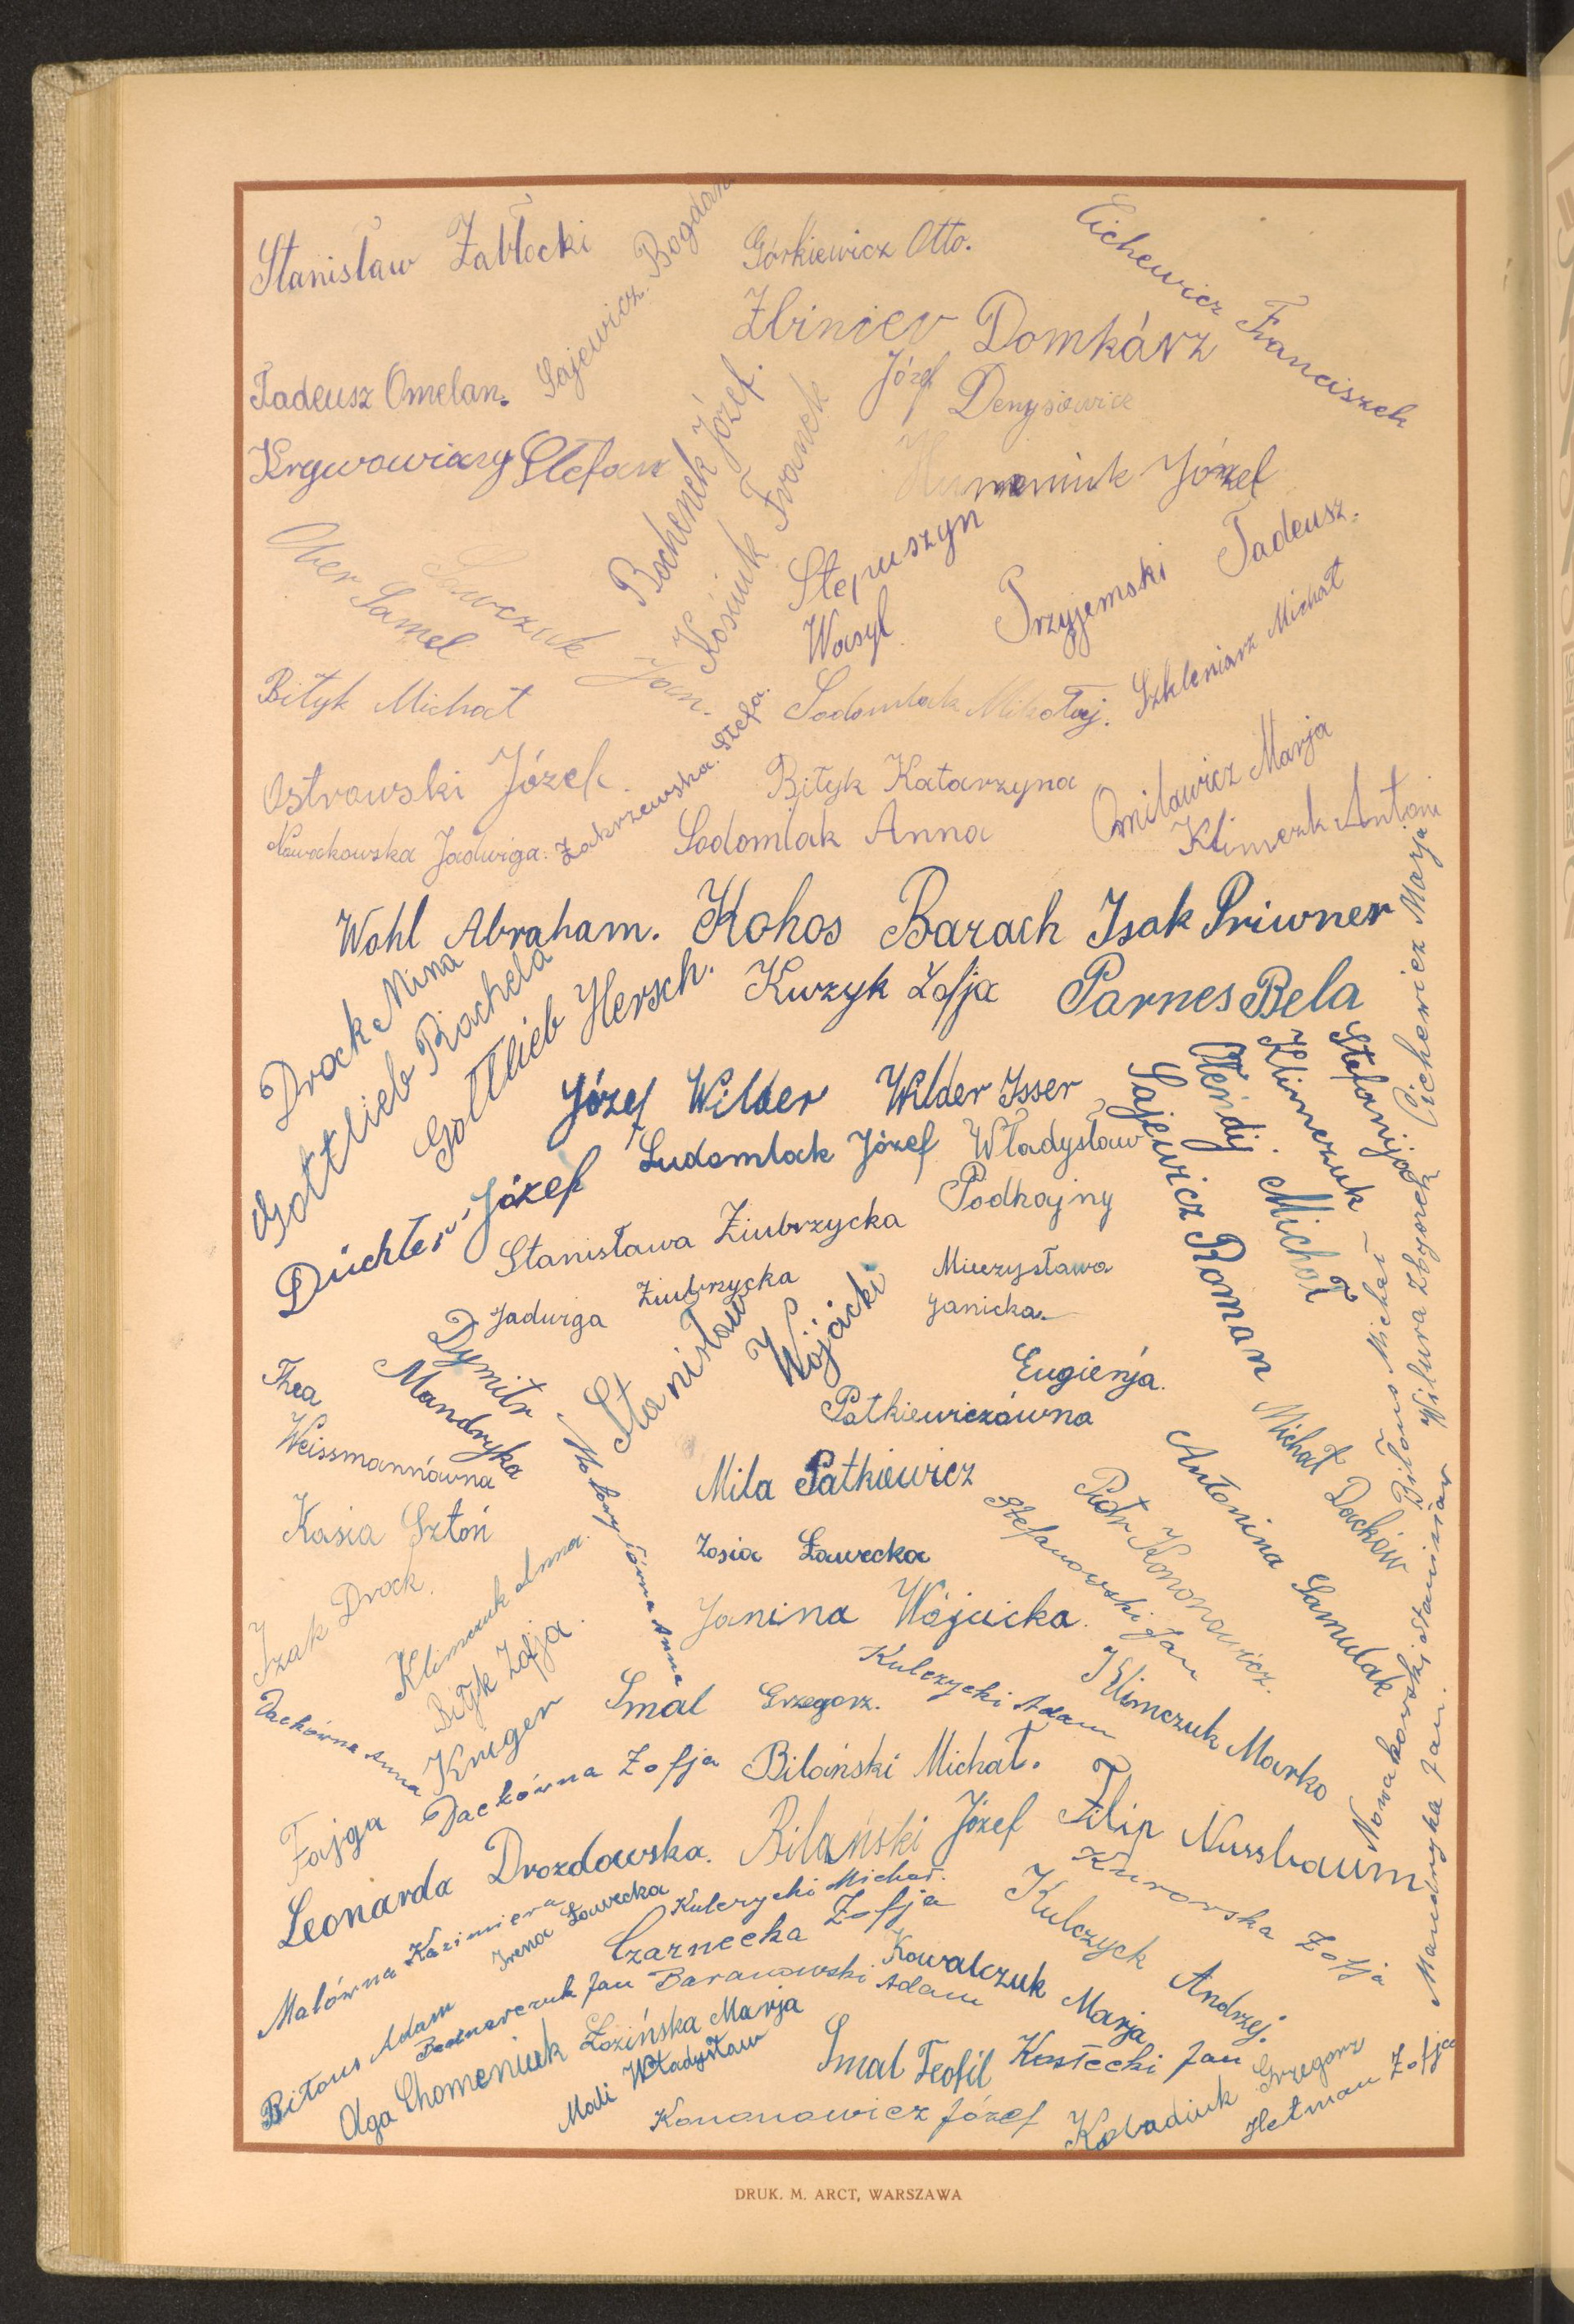 Stanisław Zabłocki
Sajewicz Bogdan
Górkiewicz Otto.
Cichewicz Franciszek
Zbiniev Domkárz
Tadeusz Omelan.
Józef Denysiewicz
Krywowiazy Stefan
Bochenek Józef.
Kośiuk Franek
Humeniuk Józef
Ober Samel
Sawczuk Jan.
Stepuszyn Wasyl.
Przyjemski Tadeusz.
Bityk Michał
Sodomlak Mikołaj.
Szkleniarz Michał
Ostrowski Józef.
Zakrzewska Stefa.
Bityk Katarzyna
Omilawicz Marja
Nowakowska Jadwiga.
Sodomlak Anna
Klimczuk Antoni
Wohl Abraham.
Kohos Barach
Isak Priwner
Cichewicz Marja
Drock Mina
Gottlieb Rachela
Gottlieb Hersch.
Kurzyk Zofja
Parnes Bela
Józef Wilder
Wilder Isser
Sajewicz Roman
Michał
Klimczuk Stefanija
Düchter Józef
Ludomlak Józef
Władysław Podkajny
Stanisława Ziubrzycka
Jadwiga Ziubrzycka
Stanisław Wójcicki
Mieczysława Janicka
Dymitr Mandryka
Thea Weissmannówna
Eugienja Patkiewiczówna
Mila Patkiewicz
Kasia Sztoń
Anna
Zosia Ławecka
Stefanowski Jan
Piotr Kononowicz.
Antonina Samulak
Michał Dachów
Biłous Michał
Wilura Zbyszek
Izak Drock.
Klimczuk Anna.
Bityk Zofja.
Janina Wójcicka.
Smal Grzegorz.
Kulczycki Adam
Klimczuk Marko
Nowakowski Stanisław
Mandryka Jan.
Dackówna Anna
Fajga Kruger
Dackówna Zofja
Bilański Michał.
Leonarda Drozdowska.
Bilański Józef
Filip Nussbaum
Malówna Kazimiera
Irena Ławecka
Kulczycki Michał.
Czarnecka Zofja
Kulczyck Andrzej.
Kurowska Zofja
Biłous Adam
Bednarczuk Jan
Baranowski Adam
Kowalczuk Marja
Olga Chomeniuk
Łozińska Marja
Madi Władysław
Smal Teofil
Kostecki Jan
Kononowicz Józef
Kobadiuk Grzegorz
Hetman Zofja
DRUK. M. ARCT, WARSZAWA